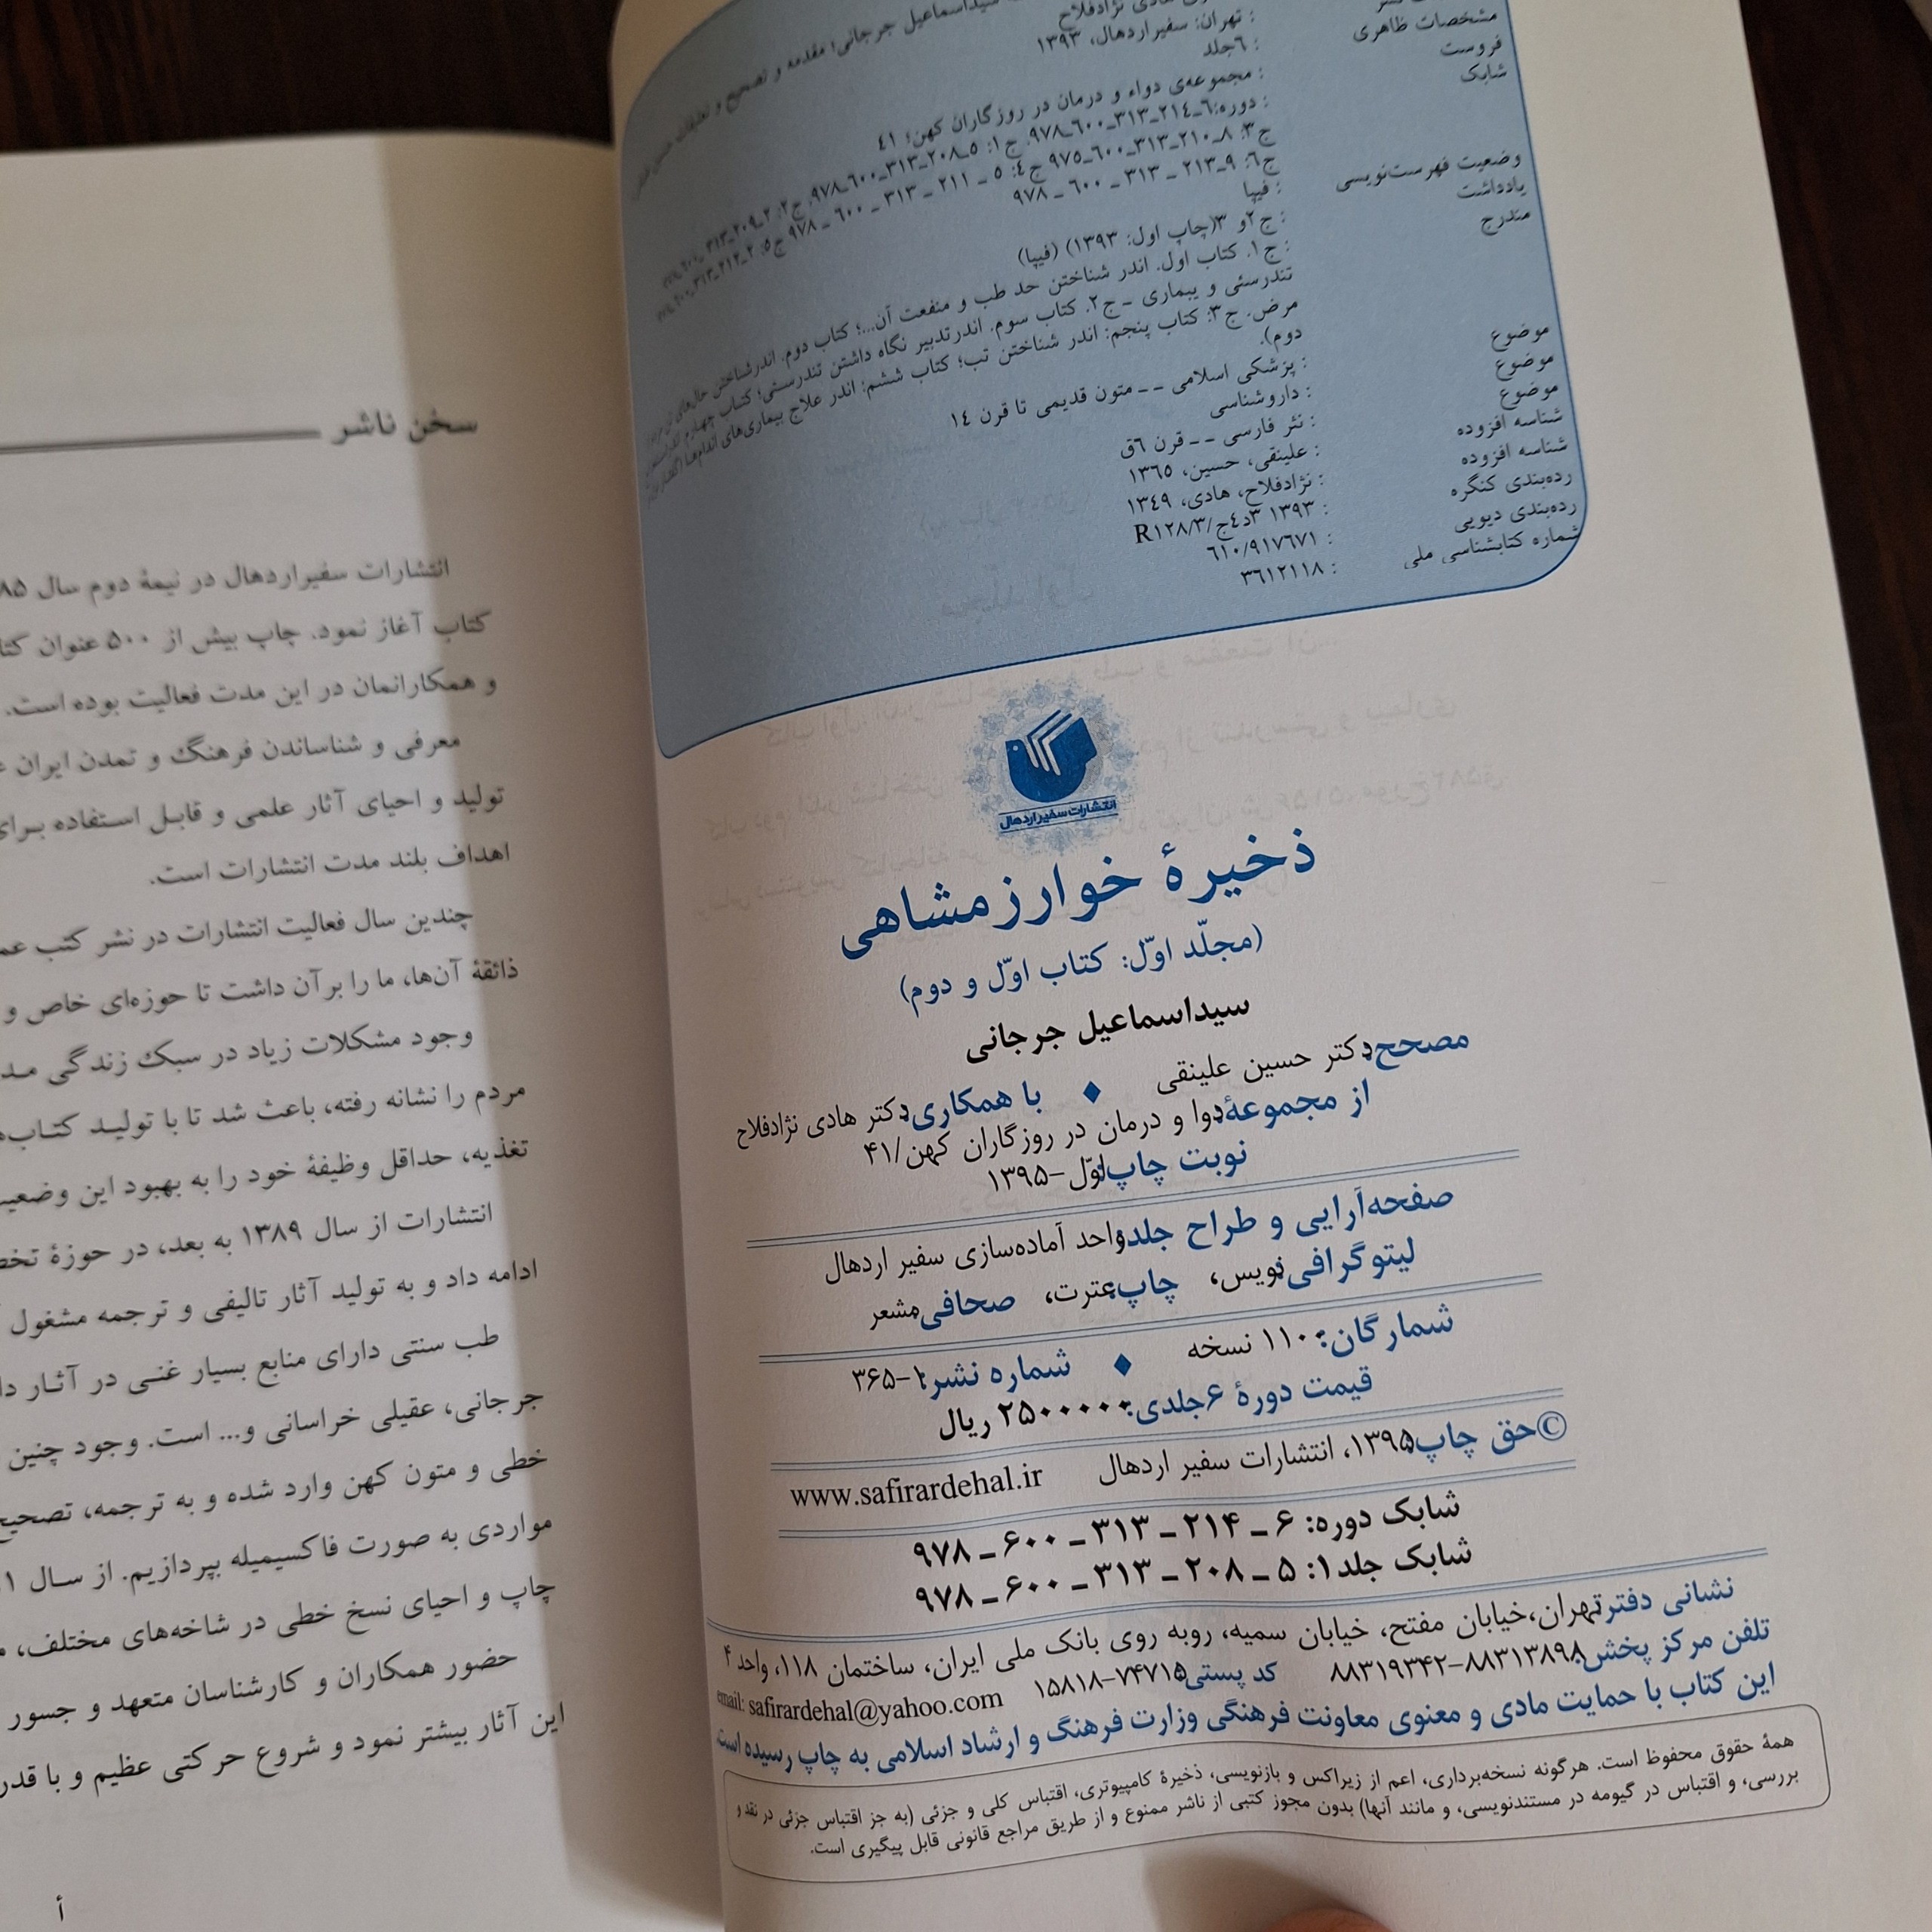 سیداسماعیل جرجانی؛ مقدمه و تصحیح و تعلیقات
مشخصات ظاهری : تهران: سفیراردهال، ۱۳۹۳
فروست : ۶جلد
شابک : مجموعه‌ی دواء و درمان در روزگاران کهن؛ ٤١
: دوره: ۶ـ۲۱٤ـ۳۱۳ـ۶۰۰ـ۹۷۸. ج۱: ۵ـ۲۰۸ـ۳۱۳ـ۶۰۰ـ۹۷۸. ج۲: ۲ـ۲۰۹ـ۳۱۳ـ
ج۳: ۸ـ۲۱۰ـ۳۱۳ـ۶۰۰ـ۹۷۵ ج٤: ۵ ـ ۲۱۱ ـ ۳۱۳ ـ ۶۰۰ ـ ۹۷۸ ج۵: ۲ـ۲۱۲ـ۳۱۳ـ
ج۶: ۹ـ۲۱۳ ـ ۳۱۳ ـ ۶۰۰ ـ ۹۷۸
وضعیت فهرست‌نویسی : فیپا
یادداشت : ج۲و ۳(چاپ اول: ۱۳۹۳) (فیپا)
مندرج : ج۱. کتاب اول. اندر شناختن حد طب و منفعت آن...؛ کتاب دوم. اندرشناختن حال‌های تن مردم از
تندرستی و بیماری ـ ج۲. کتاب سوم. اندرتدبیر نگاه داشتن تندرستی؛ کتاب چهارم
مرض. ج۳: کتاب پنجم: اندر شناختن تب؛ کتاب ششم: اندر علاج بیماری‌های اندام‌ها (گفتار
دوم).
موضوع : پزشکی اسلامی -- متون قدیمی تا قرن ۱٤
موضوع : داروشناسی
موضوع : نثر فارسی -- قرن ۶ق
شناسه افزوده : علینقی، حسین، ۱۳۶۵
شناسه افزوده : نژادفلاح، هادی، ۱۳٤۹
رده‌بندی کنگره : ۱۳۹۳ ۳د٤ج/R۱۲۸/۳
رده‌بندی دیویی : ۶۱۰/۹۱۷۶۷۱
شماره کتابشناسی ملی : ۳۶۱۲۱۱۸
انتشارات سفیر اردهال
ذخیرهٔ خوارزمشاهی
(مجلّد اوّل: کتاب اوّل و دوم)
سیداسماعیل جرجانی
مصحح: دکتر حسین علینقی ♦ با همکاری: دکتر هادی نژادفلاح
از مجموعهٔ: دوا و درمان در روزگاران کهن/۴۱
نوبت چاپ: اوّل-۱۳۹۵
صفحه‌آرایی و طراح جلد: واحد آماده‌سازی سفیر اردهال
لیتوگرافی: نویس، چاپ: عترت، صحافی: مشعر
شمارگان: ۱۱۰۰ نسخه ♦ شماره نشر: ۱-۳۶۵
قیمت دورهٔ ۶جلدی: ۲۵۰۰۰۰۰ ریال
©حق چاپ: ۱۳۹۵، انتشارات سفیر اردهال www.safirardehal.ir
شابک دوره: ۶ ـ ۲۱۴ ـ ۳۱۳ ـ ۶۰۰ ـ ۹۷۸
شابک جلد۱: ۵ ـ ۲۰۸ ـ ۳۱۳ ـ ۶۰۰ ـ ۹۷۸
نشانی دفتر: تهران،خیابان مفتح، خیابان سمیه، روبه روی بانک ملی ایران، ساختمان ۱۱۸، واحد ۴
تلفن مرکز پخش: ۸۸۳۱۳۸۹۸-۸۸۳۱۹۳۴۲ کد پستی: ۷۴۷۱۵-۱۵۸۱۸ email: safirardehal@yahoo.com
این کتاب با حمایت مادی و معنوی معاونت فرهنگی وزارت فرهنگ و ارشاد اسلامی به چاپ رسیده است.
همهٔ حقوق محفوظ است. هرگونه نسخه‌برداری، اعم از زیراکس و بازنویسی، ذخیرهٔ کامپیوتری، اقتباس کلی و جزئی (به جز اقتباس جزئی در نقد و
بررسی، و اقتباس در گیومه در مستندنویسی، و مانند آنها) بدون مجوز کتبی از ناشر ممنوع و از طریق مراجع قانونی قابل پیگیری است.
سخن ناشر
انتشارات سفیراردهال در نیمهٔ دوم سال ۸۵
کتاب آغاز نمود. چاپ بیش از ۵۰۰ عنوان
و همکارانمان در این مدت فعالیت بوده است.
معرفی و شناساندن فرهنگ و تمدن ایران
تولید و احیای آثار علمی و قابل استفاده برای
اهداف بلند مدت انتشارات است.
چندین سال فعالیت انتشارات در نشر کتب
ذائقهٔ آن‌ها، ما را بر آن داشت تا حوزه‌ای خاص و
وجود مشکلات زیاد در سبک زندگی
مردم را نشانه رفته، باعث شد تا با تولید
تغذیه، حداقل وظیفهٔ خود را به بهبود این
انتشارات از سال ۱۳۸۹ به بعد، در حوزهٔ
ادامه داد و به تولید آثار تالیفی و ترجمه مشغول
طب سنتی دارای منابع بسیار غنی در آثار
جرجانی، عقیلی خراسانی و... است. وجود چنین
خطی و متون کهن وارد شده و به ترجمه، تصحیح
مواردی به صورت فاکسیمیله بپردازیم. از سال
چاپ و احیای نسخ خطی در شاخه‌های مختلف،
حضور همکاران و کارشناسان متعهد و جسور
این آثار بیشتر نمود و شروع حرکتی عظیم و با
أ